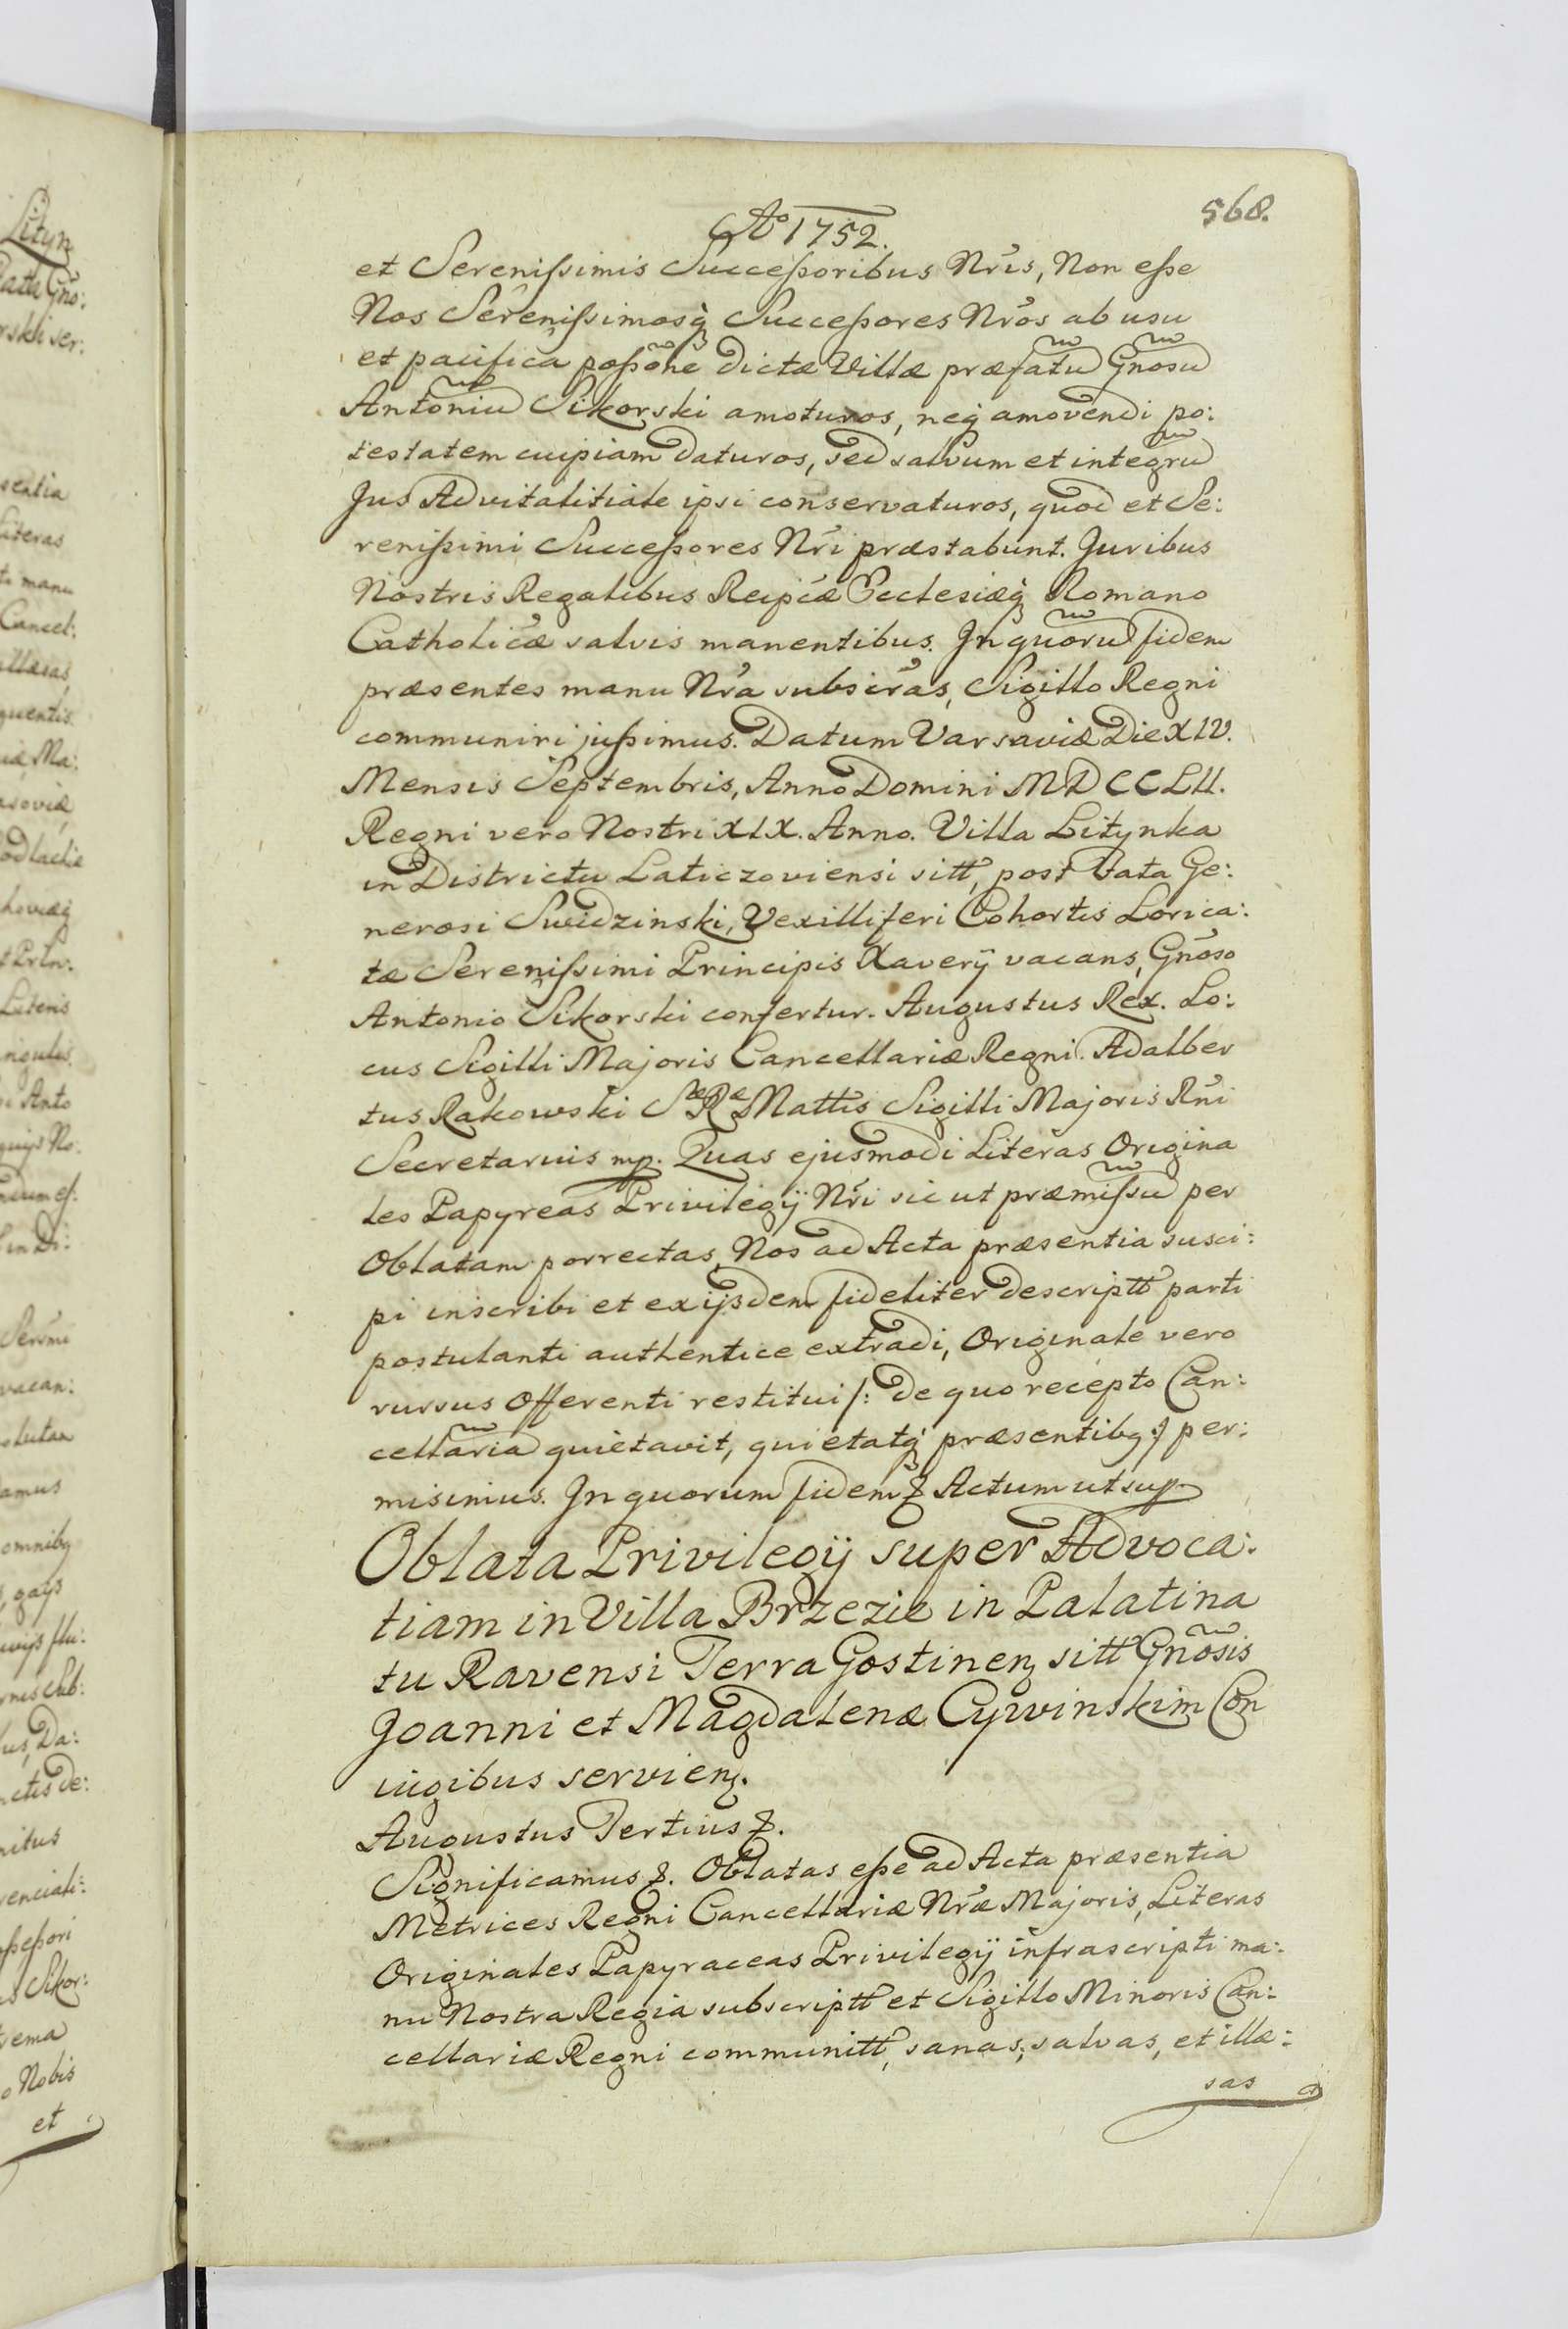 568.
Aº 1752.
et Serenißimis Succeßoribus Nr̃is, Non eße
Nos Serenißimosq̃ Succeßores Nr̃os ab usu
et pacifica poßõne dictæ Villæ præfatũ Gñosũ
Antoniũ Sikorski amoturos, neq̃ amovendi po:
testatem cuipiam daturos, sed salvum et integrũ
Jus Advitalitiale ipsi conservaturos, quod et Se:
renißimi Succeßores Nr̃i præstabunt. Juribus
Nostris Regalibus Reipcæ Ecclesiæq̃ Romano
Catholicæ salvis manentibus. In quorũ fidem
præsentes manu Nr̃a subscr̃as, Sigillo Regni
communiri jußimus. Datum Varsaviæ Die XIV.
Mensis Septembris, Anno Domini MDCCLII.
Regni vero Nostri XIX. Anno. Villa Litynka
in Districtu Laticzoviensi sitt, post Fata Ge:
nerosi Swidzinski, Vexilliferi Cohortis Lorica:
tæ Serenißimi Principis Xaverÿ vacans, Gñoso
Antonio Sikorski confertur. Augustus Rex. Lo:
cus Sigilli Majoris Cancellariæ Regni. Adalber
tus Rakowski Sæ Ræ Mattis Sigilli Majoris Rñi
Secretarius mp. Quas ejusmodi Literas Origina
les Papyreas Privilegÿ Nr̃i sic ut præmißũ per
Oblatam porrectas, Nos ad Acta præsentia susci:
pi inscribi et exijsdem fideliter descriptt parti
postulanti authentice extradi, Originale vero
rursus Offerenti restitui /: de quo recepto Can:
cellariã quietavit, quietatq̃ præsentibq :/ per:
misimus. In quorum fidem &. Actum ut sup.
Oblata Privilegÿ super Advoca:
tiam in Villa Brzezie in Palatina
tu Ravensi Terra Gostinen sitt Gñosis
Joanni et Magdalenæ Cywinskim Con
iugibus servien.
Augustus Tertius &.
Significamus &. Oblatas eße ad Acta præsentia
Metrices Regni Cancellariæ Nr̃æ Majoris, Literas
Originales Papyraceas Privilegÿ infrascripti ma:
nu Nostra Regia subscriptt et Sigillo Minoris Can:
cellariæ Regni communitt, sanas, salvas, et illæ:
sas